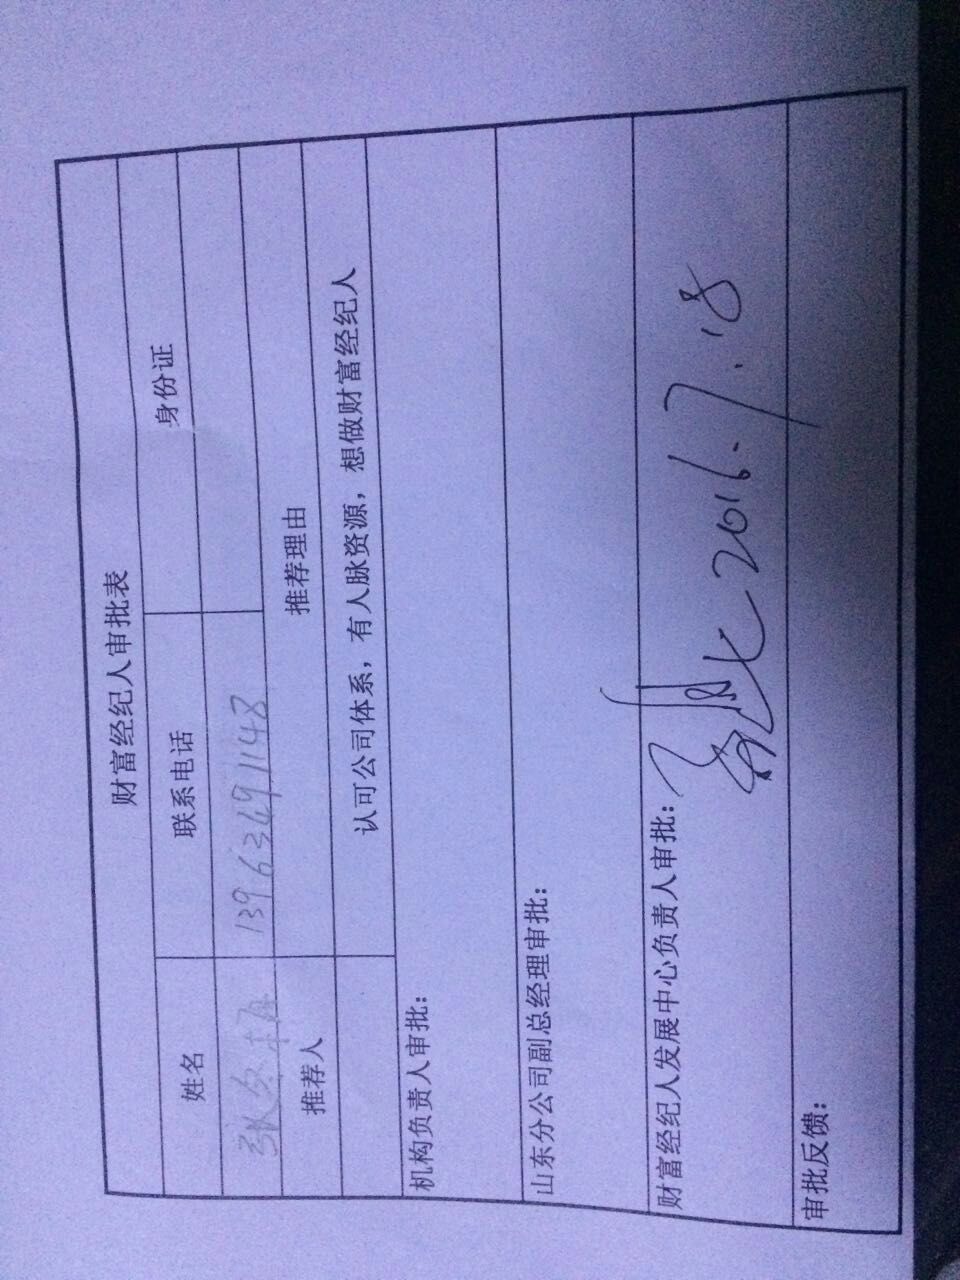 财富经纪人审批表
姓名 联系电话 身份证
张 13963491148
推荐人 推荐理由
认可公司体系，有人脉资源，想做财富经纪人
机构负责人审批：
山东分公司副总经理审批：
财富经纪人发展中心负责人审批： 2016.7.18
审批反馈：